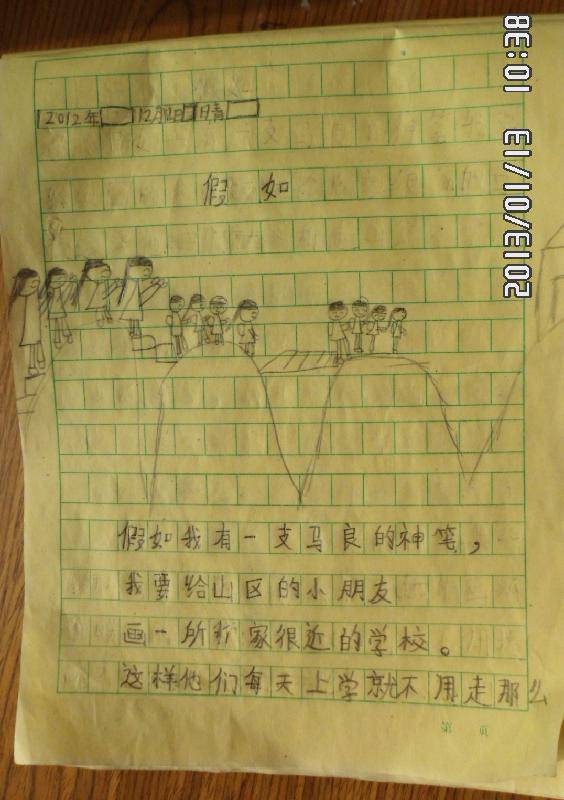 2012年 12月12日 晴
假如
假如我有一支马良的神笔，
我要给山区的小朋友
画一所离家很近的学校。
这样他们每天上学就不用走那么
第 页
2013/01/13 10:38